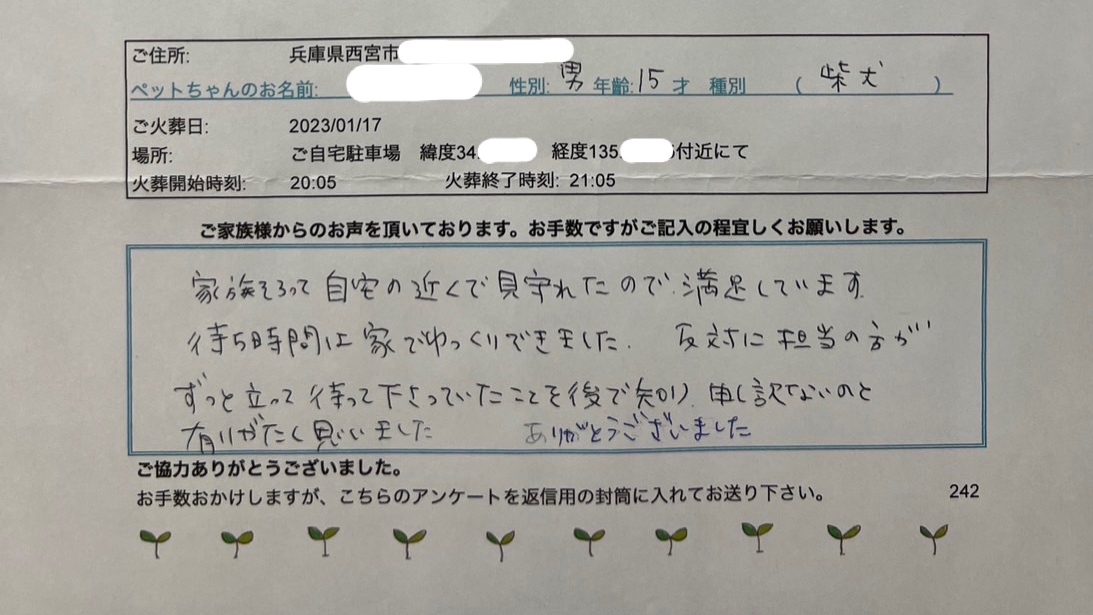 ご住所: 兵庫県西宮市
ペットちゃんのお名前: 性別: 男 年齢: 15 才 種別 ( 柴犬 )
ご火葬日: 2023/01/17
場所: ご自宅駐車場 緯度34. 経度135. 付近にて
火葬開始時刻: 20:05 火葬終了時刻: 21:05
ご家族様からのお声を頂いております。お手数ですがご記入の程宜しくお願いします。
家族そろって自宅の近くで見守れたので満足しています。
待ち時間は家でゆっくりできました. 反対に担当の方が
ずっと立って待って下さっていたことを後で知り 申し訳ないのと
有りがたく思いました ありがとうございました
ご協力ありがとうございました。
お手数おかけしますが、こちらのアンケートを返信用の封筒に入れてお送り下さい。 242